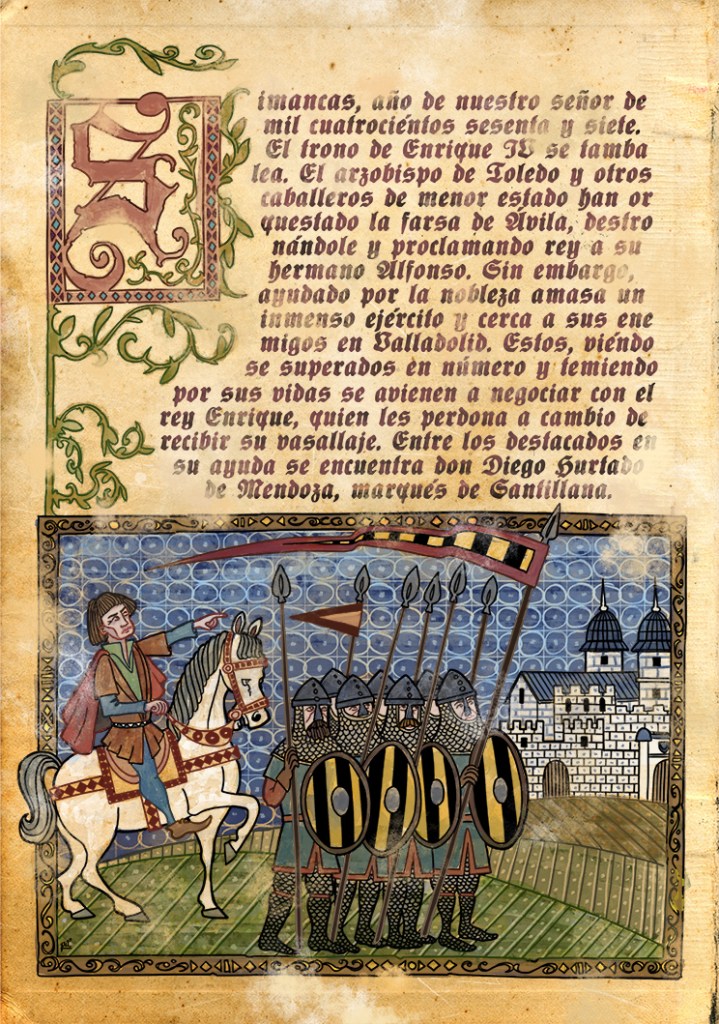 Simancas, año de nuestro señor de
mil cuatrociéntos sesenta y siete.
El trono de Enrique IV se tamba
lea. El arzobispo de Toledo y otros
caballeros de menor estado han or
questado la farsa de Ávila, destro
nándole y proclamando rey a su
hermano Alfonso. Sin embargo,
ayudado por la nobleza amasa un
inmenso ejército y cerca a sus ene
migos en Valladolid. Estos, viéndo
se superados en número y temiendo
por sus vidas se avienen a negociar con el
rey Enrique, quien les perdona a cambio de
recibir su vasallaje. Entre los destacados en
su ayuda se encuentra don Diego Hurtado
de Mendoza, marqués de Santillana.